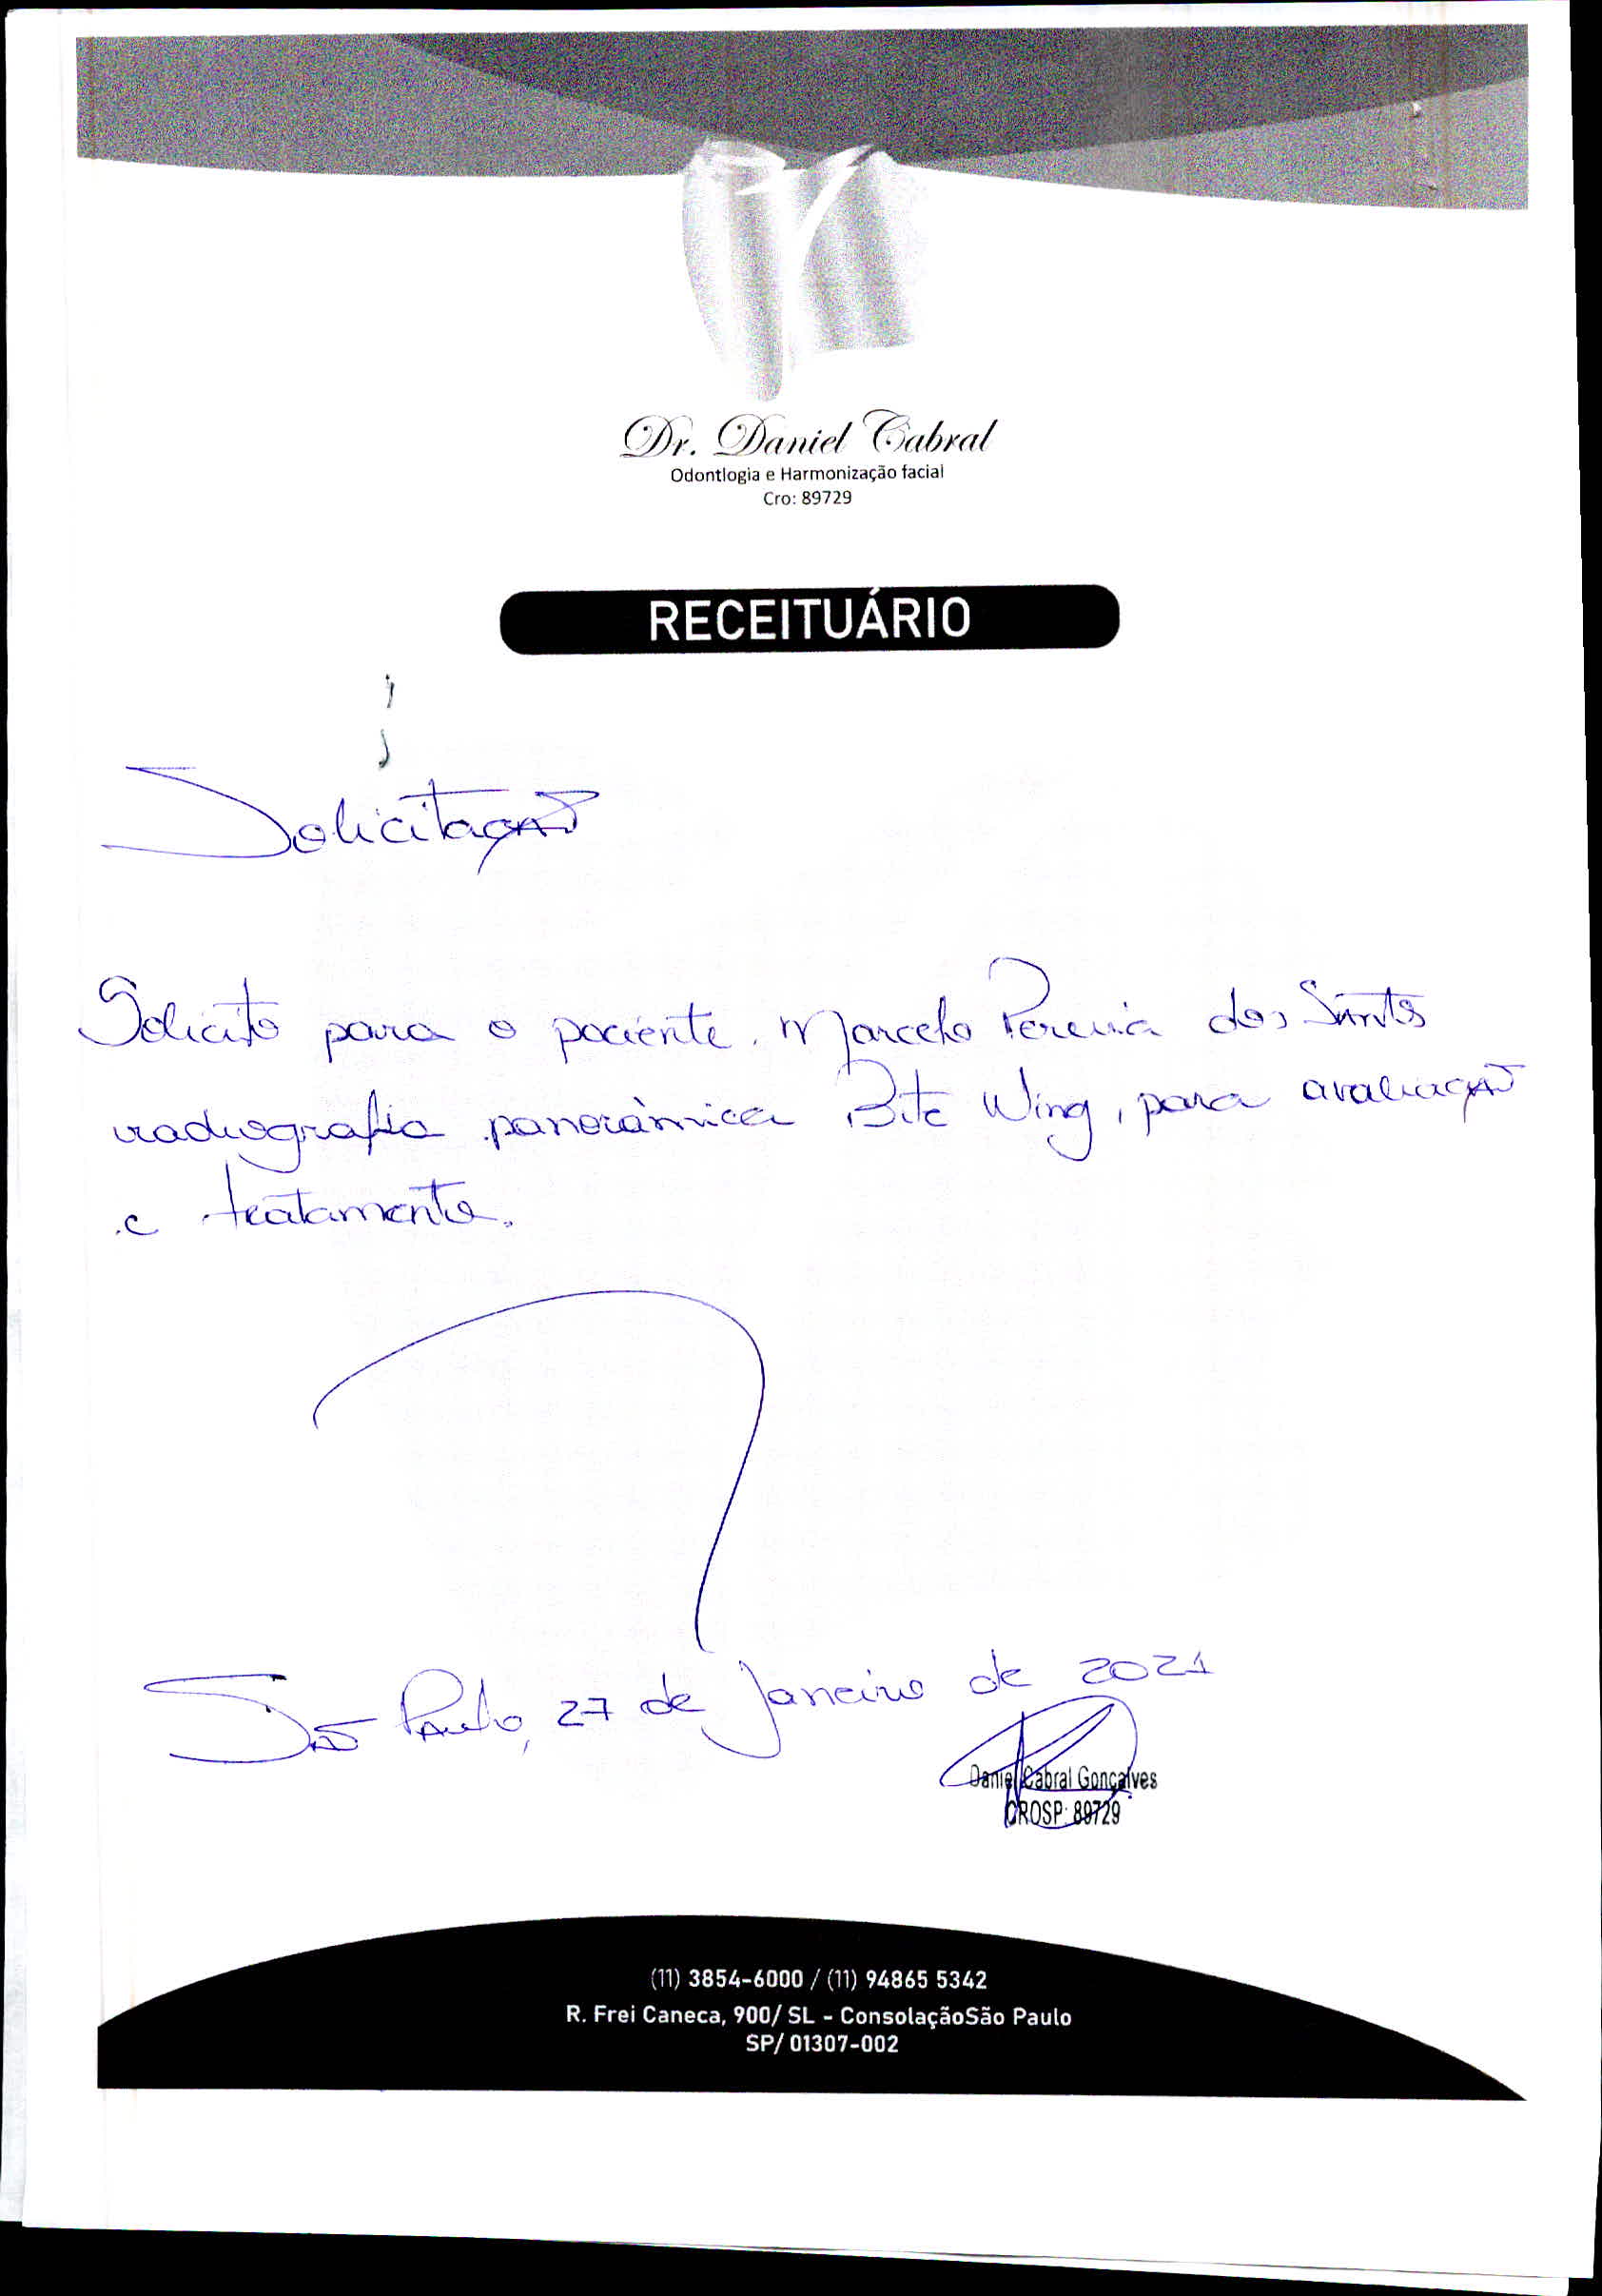 Dr. Daniel Cabral
Odontlogia e Harmonização facial
Cro: 89729
RECEITUÁRIO
Solicitação
Solicito para o paciente. Marcelo Pereira dos Santos
radiografia panorâmica Bite Wing, para avaliação
e tratamento.
São Paulo, 27 de Janeiro de 2021
Daniel Cabral Gonçalves
CROSP: 89729
(11) 3854-6000 / (11) 94865 5342
R. Frei Caneca, 900/ SL - ConsolaçãoSão Paulo
SP/ 01307-002